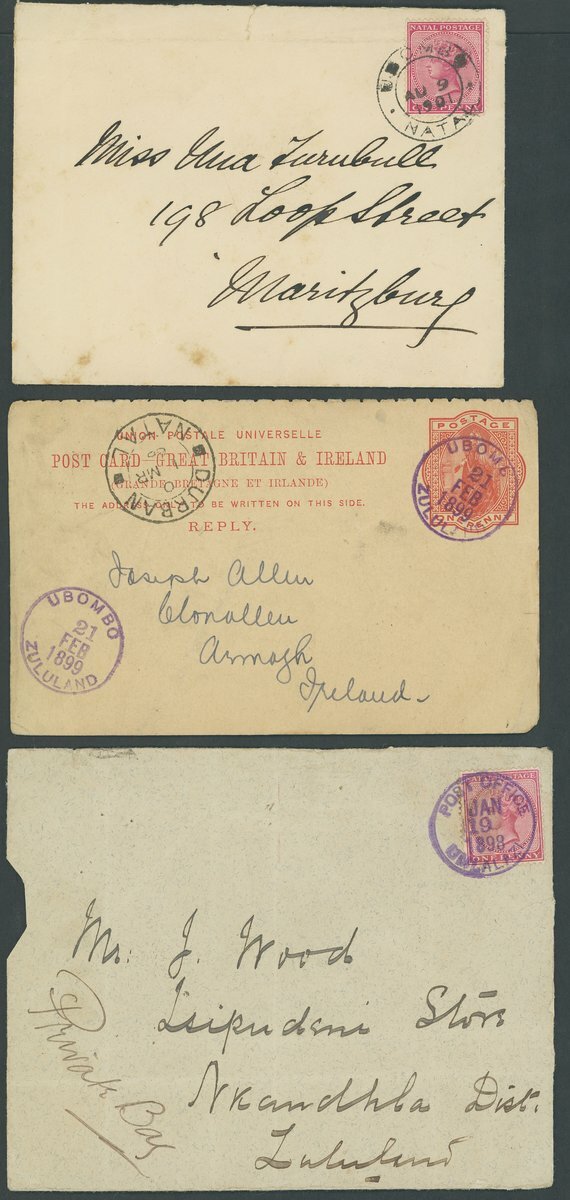 NATAL POSTAGE
ONE PENNY
UBOMBO
AU 9
1901
NATAL
Miss Una Turnbull
198 Loop Street
Maritzburg
UNION POSTALE UNIVERSELLE
POST CARD GREAT BRITAIN & IRELAND
(GRANDE BRETAGNE ET IRLANDE)
THE ADDRESS ONLY TO BE WRITTEN ON THIS SIDE.
REPLY.
DURBAN
NATAL
MR
POSTAGE
ONE PENNY
UBOMBO
21
FEB
1899
ZULUL
Joseph Allen
Clonallen
Armagh
Ireland
UBOMBO
21
FEB
1899
ZULULAND
NATAL POSTAGE
ONE PENNY
POST OFFICE
JAN
19
898
Mr. J. Wood
Isipudeni Store
Nkandhla Dist.
Zululand
Private Bag